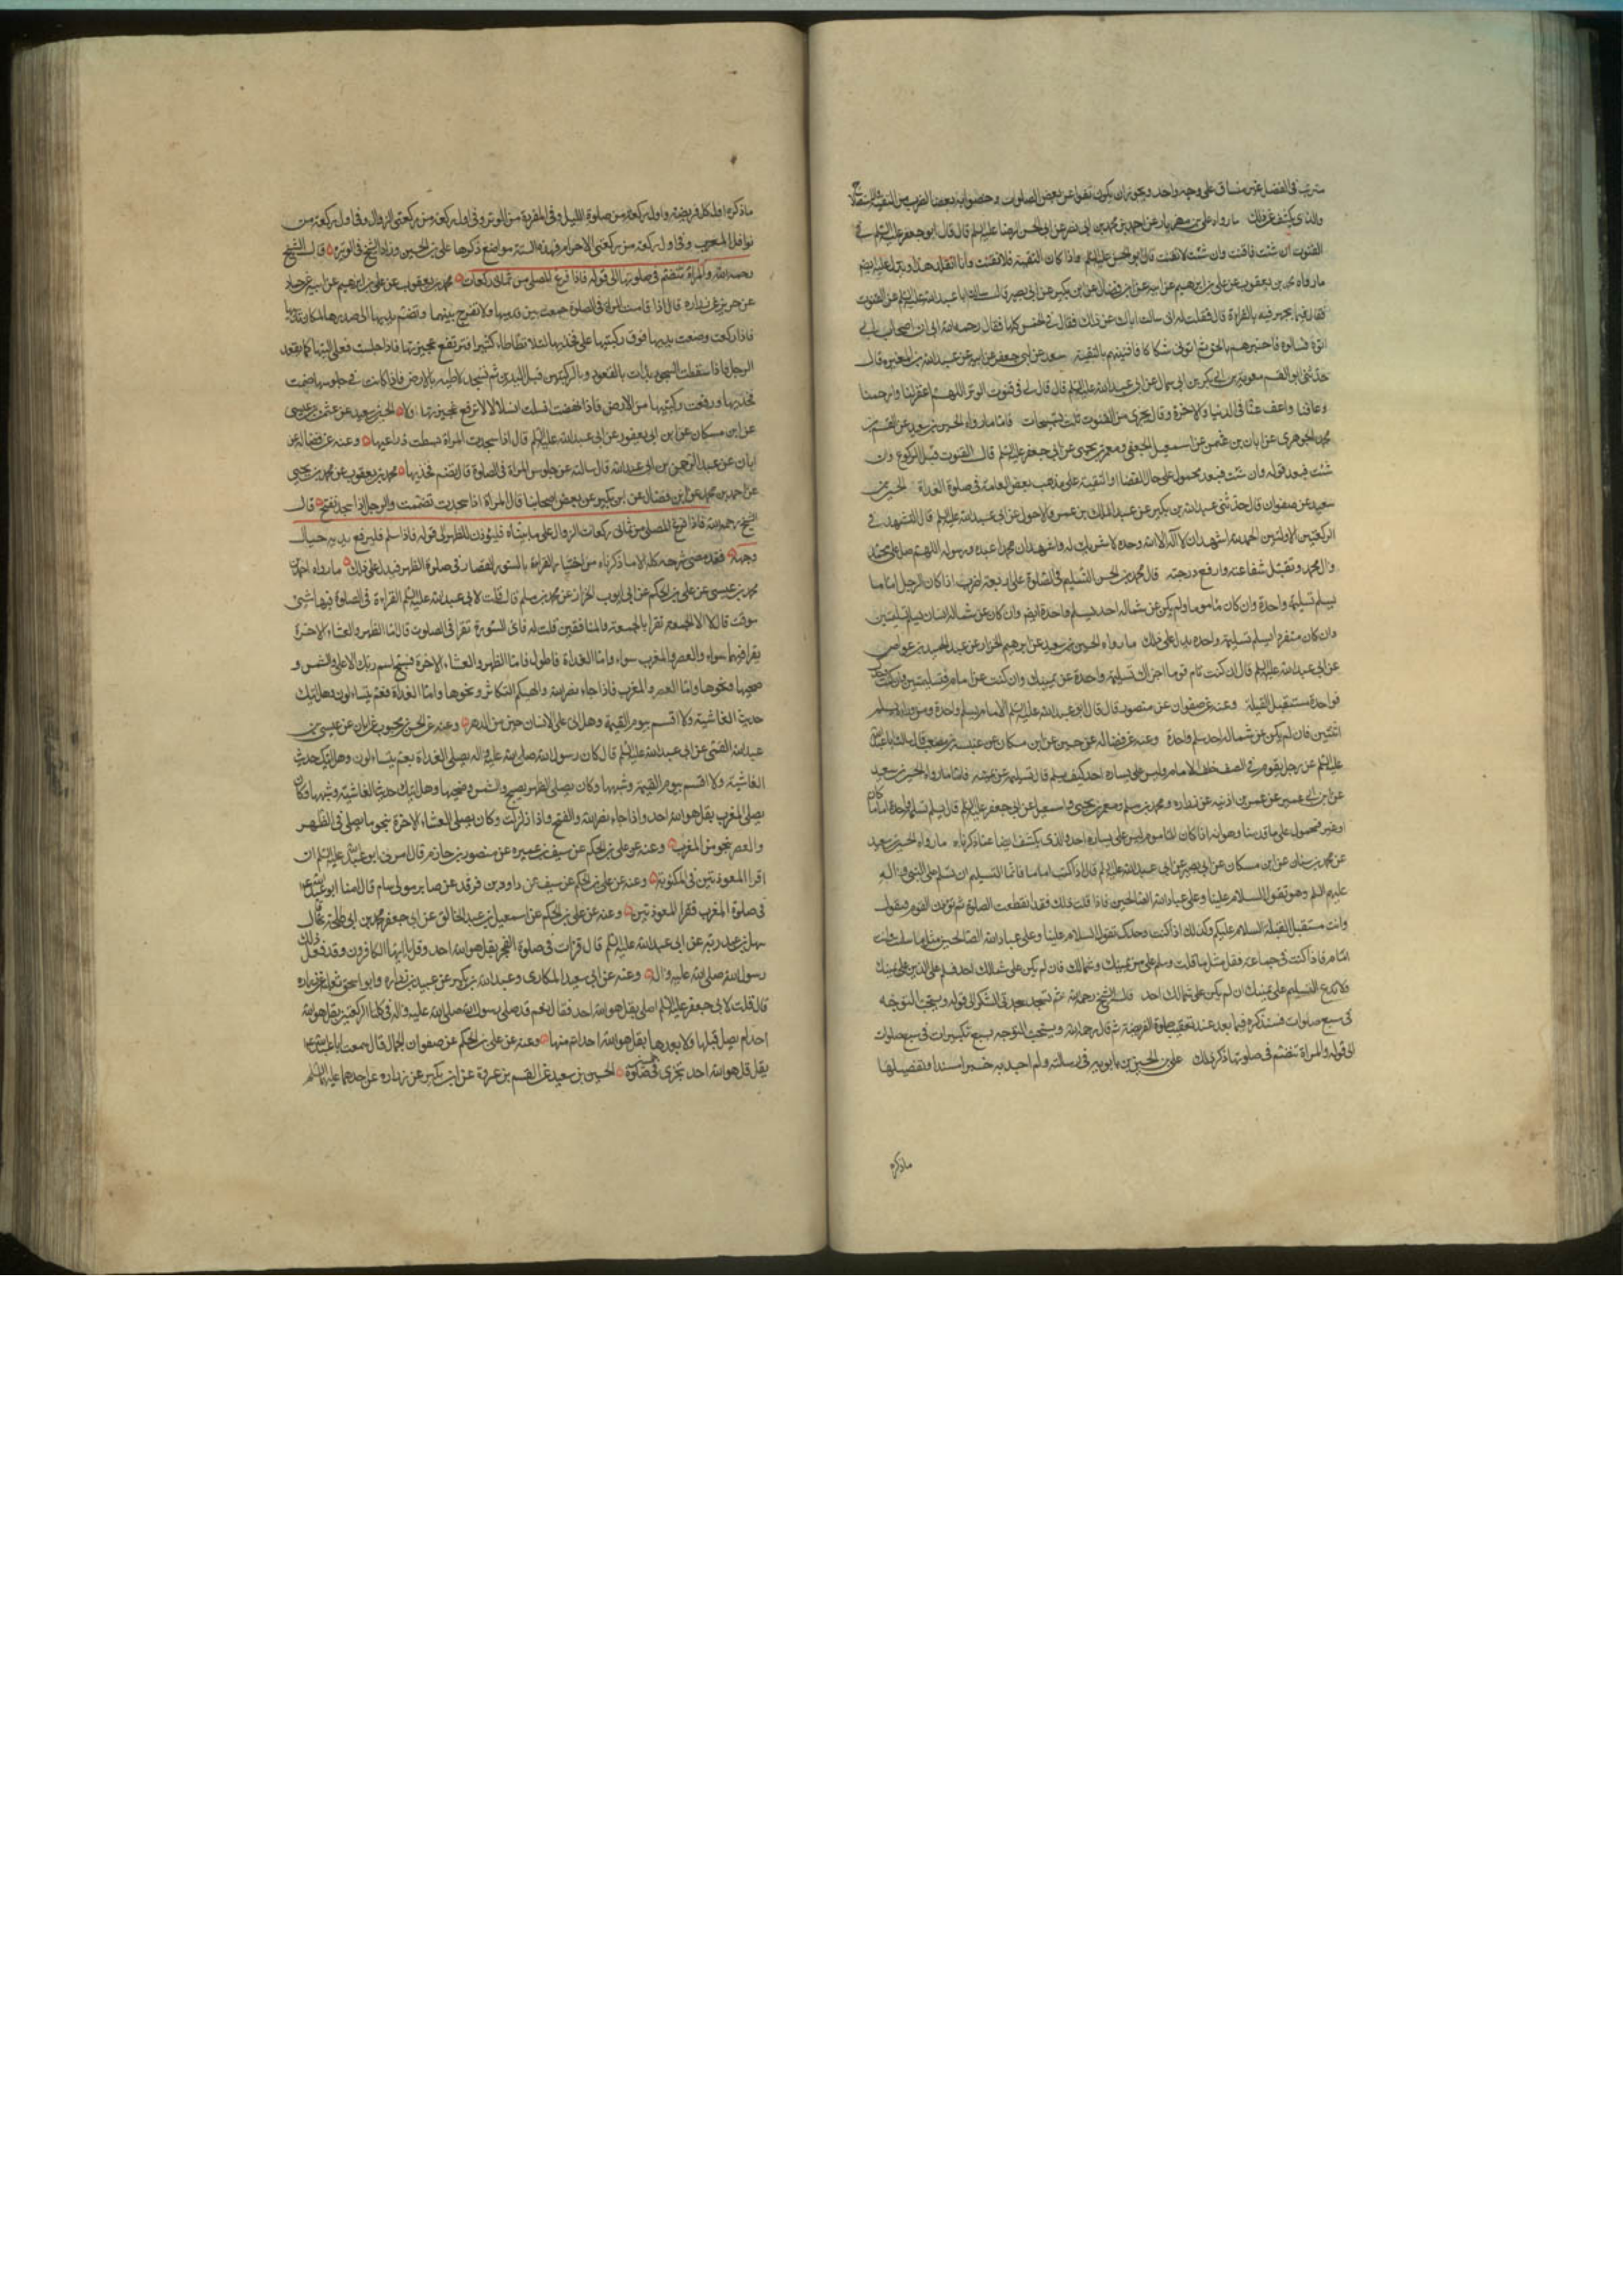 مترتب في الفضل غير متساق على وجه واحد ويجوز ان يكون نفوا عن بعض الصلوات وخصوا به بعضا لضرب من التقية والاستصلاح
والذي يكشف عن ذلك ما رواه علي بن مهزيار عن احمد بن محمد بن ابي نصر عن ابي الحسن الرضا عليه السلم قال قال ابو جعفر عليه السلم في
القنوت ان شئت فاقنت وان شئت لا تقنت قال ابو الحسن عليه السلم واذا كان التقية فلا تقنت وانا اتقلد هذا ويدل عليه ايضا
ما رواه محمد بن يعقوب عن علي بن ابرهيم عن ابيه عن ابن فضال عن ابن بكير عن ابي بصير قال سالت ابا عبد الله عليه السلم عن القنوت
فقال فيما يجهر فيه بالقراءة قال فقلت له اني سالت اباك عن ذلك فقال في الخمس كلها فقال رحم الله ابي ان اصحاب ابي
اتوه فسالوه فاخبرهم بالحق ثم اتوني شكاكا فافتيتهم بالتقية سعد عن ابي جعفر عن ابيه عن عبد الله بن المغيرة قال
حدثني ابو القسم معوية بن ابي بكر بن ابي سمال عن ابي عبد الله عليه السلم قال قال لي في قنوت الوتر اللهم اغفر لنا وارحمنا
وعافنا واعف عنا في الدنيا والاخرة وقال يجزي من القنوت ثلث تسبيحات فاما ما رواه الحسين بن سعيد عن القسم بن
محمد الجوهري عن ابان بن عثمن عن اسمعيل الجعفي ومعمر بن يحيى عن ابي جعفر عليه السلم قال القنوت قبل الركوع وان
شئت فبعد فقوله وان شئت فبعد محمول على حال القضا او التقية على مذهب بعض العامة في صلوة الغداة الحسين بن
سعيد عن صفوان قال حدثني عبد الله بن بكير عن عبد الملك بن عمرو الاحول عن ابي عبد الله عليه السلم قال التشهد في
الركعتين الاولتين الحمد لله اشهد ان لا اله الا الله وحده لا شريك له واشهد ان محمدا عبده ورسوله اللهم صل على محمد
وال محمد وتقبل شفاعته وارفع درجته قال محمد بن الحسن التسليم في الصلوة على اربعة اضرب اذا كان الرجل اماما
يسلم تسليمة واحدة وان كان ماموما ولم يكن عن شماله احد يسلم واحدة ايضا وان كان عن شماله انسان يسلم تسليمتين
وان كان منفردا يسلم تسليمة واحدة يدل على ذلك ما رواه الحسين بن سعيد عن ابرهيم الخزاز عن عبد الحميد بن عواض
عن ابي عبد الله عليه السلم قال ان كنت تؤم قوما اجزاك تسليمة واحدة عن يمينك وان كنت مع امام فتسليمتين وان كنت وحدك
فواحدة مستقبل القبلة وعنه عن صفوان عن منصور قال قال ابو عبد الله عليه السلم الامام يسلم واحدة ومن وراءه يسلم
اثنتين فان لم يكن عن شماله احد سلم واحدة وعنه عن فضالة عن حسين عن ابن مسكان عن عنبسة بن مصعب قال سالت ابا عبد الله
عليه السلم عن رجل يقوم في الصف خلف الامام وليس على يساره احد كيف يسلم قال تسليمة عن يمينه فاما ما رواه الحسين بن سعيد
عن ابن ابي عمير عن عمر بن اذينة عن زرارة ومحمد بن مسلم ومعمر بن يحيى واسمعيل عن ابي جعفر عليه السلم قال يسلم تسليمة واحدة اماما كان
او غيره فمحمول على ما قدمنا وهو انه اذا كان الماموم ليس على يساره احد والذي يكشف ايضا عما ذكرناه ما رواه الحسين بن سعيد
عن محمد بن سنان عن ابن مسكان عن ابي بصير عن ابي عبد الله عليه السلم قال اذا كنت اماما فانما التسليم ان تسلم على النبي واله
عليهم السلم وهو تقول السلام علينا وعلى عباد الله الصالحين فاذا قلت ذلك فقد انقطعت الصلوة ثم تؤذن القوم فتقول
وانت مستقبل القبلة السلام عليكم وكذلك اذا كنت وحدك تقول السلام علينا وعلى عباد الله الصالحين مثل ما سلمت وانت
امام فاذا كنت في جماعة فقل مثل ما قلت وسلم على من يمينك وشمالك فان لم يكن على شمالك احد فسلم على الذين على يمينك
فلا تدع التسليم على يمينك ان لم يكن على شمالك احد قال الشيخ رحمه الله ثم تسجد سجدتي الشكر الى قوله ويستحب التوجه
في سبع صلوات فسنذكره فيما بعد عند تعقيب صلوة الفريضة ثم قال رحمه الله ويستحب التوجه بسبع تكبيرات في سبع صلوات
الى قوله والمراة تنضم في صلوتها ذكر ذلك علي بن الحسين بن بابويه في رسالته ولم اجد به خبرا مسندا وتفصيلها
ماذكره
ما ذكره اول كل فريضة واول ركعة من صلوة الليل وفي المفردة من الوتر وفي اول ركعة من ركعتي الزوال وفي اول ركعة من
نوافل المغرب وفي اول ركعة من ركعتي الاحرام فهذه الستة مواضع ذكرها علي بن الحسين وزاد الشيخ في الوتيرة قال الشيخ
رحمه الله والمراة تنضم في صلوتها الى قوله فاذا فرغ المصلي من ثماني ركعات محمد بن يعقوب عن علي بن ابرهيم عن ابيه عن حماد
عن حريز عن زرارة قال اذا قامت المراة في الصلوة جمعت بين قدميها ولا تفرج بينهما وتضم يديها الى صدرها لمكان ثدييها
فاذا ركعت وضعت يديها فوق ركبتيها على فخذيها لئلا تطاطا كثيرا فترتفع عجيزتها فاذا جلست فعلى اليتيها كما يقعد
الرجل فاذا سقطت للسجود بدات بالقعود وبالركبتين قبل اليدين ثم تسجد لاطية بالارض فاذا كانت في جلوسها ضمت
فخذيها ورفعت ركبتيها من الارض فاذا نهضت انسلت انسلالا لا ترفع عجيزتها اولا الحسين بن سعيد عن عثمن بن عيسى
عن ابن مسكان عن ابن ابي يعفور عن ابي عبد الله عليه السلم قال اذا سجدت المراة بسطت ذراعيها وعنه عن فضالة عن
ابان عن عبد الرحمن بن ابي عبد الله قال سالته عن جلوس المراة في الصلوة قال تضم فخذيها محمد بن يعقوب عن محمد بن يحيى
عن احمد بن محمد عن ابن فضال عن ابن بكير عن بعض اصحابنا قال المراة اذا سجدت تضممت والرجل اذا سجد تفتح قال
الشيخ رحمه الله فاذا فرغ المصلي من ثماني ركعات الزوال على ما بيناه فليؤذن للظهر الى قوله فاذا سلم فليرفع يديه حيال
وجهه فقد مضى شرحه كله الا ما ذكرناه من اختيار القراءة بالسور القصار في صلوة الظهر فيدل على ذلك ما رواه احمد بن
محمد بن عيسى عن علي بن الحكم عن ابي ايوب الخزاز عن محمد بن مسلم قال قلت لابي عبد الله عليه السلم القراءة في الصلوة فيها شيء
موقت قال لا الا الجمعة تقرا بالجمعة والمنافقين قلت له فاي السورة تقرا في الصلوات قال اما الظهر والعشاء الاخرة
يقرا فيهما سواء والعصر والمغرب سواء واما الغداة فاطول فاما الظهر والعشاء الاخرة فسبح اسم ربك الاعلى والشمس و
ضحيها ونحوها واما العصر والمغرب فاذا جاء نصر الله والهيكم التكاثر ونحوها واما الغداة فعم يتساءلون وهل اتيك
حديث الغاشية ولا اقسم بيوم القيمة وهل اتى على الانسان حين من الدهر وعنه عن الحسن بن محبوب عن ابان عن عيسى بن
عبد الله القمي عن ابي عبد الله عليه السلم قال كان رسول الله صلى الله عليه واله يصلي الغداة بعم يتساءلون وهل اتيك حديث
الغاشية ولا اقسم بيوم القيمة وشبهها وكان يصلي الظهر بسبح والشمس وضحيها وهل اتيك حديث الغاشية وشبهها وكان
يصلي المغرب بقل هو الله احد واذا جاء نصر الله والفتح واذا زلزلت وكان يصلي العشاء الاخرة بنحو ما يصلي في الظهر
والعصر بنحو من المغرب وعنه عن علي بن الحكم عن سيف بن عميرة عن منصور بن حازم قال امرني ابو عبد الله عليه السلم ان
اقرا المعوذتين في المكتوبة وعنه عن علي بن الحكم عن سيف عن داود بن فرقد عن صابر مولى بسام قال امنا ابو عبد الله ع
في صلوة المغرب فقرا المعوذتين وعنه عن علي بن الحكم عن اسمعيل بن عبد الخالق عن ابي جعفر محمد بن ابي طلحة خال
سهل بن عبد ربه عن ابي عبد الله عليه السلم قال قرات في صلوة الفجر بقل هو الله احد وقل يا ايها الكافرون وقد فعل ذلك
رسول الله صلى الله عليه واله وعنه عن ابي سعيد المكاري وعبد الله بن بكير عن عبيد بن زرارة وابو اسحق ثعلبة عن زرارة
قال قلت لابي جعفر عليه السلم اصلي بقل هو الله احد فقال نعم قد صلى رسول الله صلى الله عليه واله في كلتا الركعتين بقل هو الله
احد لم يصل قبلها ولا بعدها بقل هو الله احد اتم منها وعنه عن علي بن الحكم عن صفوان الجمال قال سمعت ابا عبد الله ع
يقل قل هو الله احد تجزي في خمسين صلوة الحسين بن سعيد عن القسم بن عروة عن ابن بكير عن زرارة عن احدهما عليهما السلم